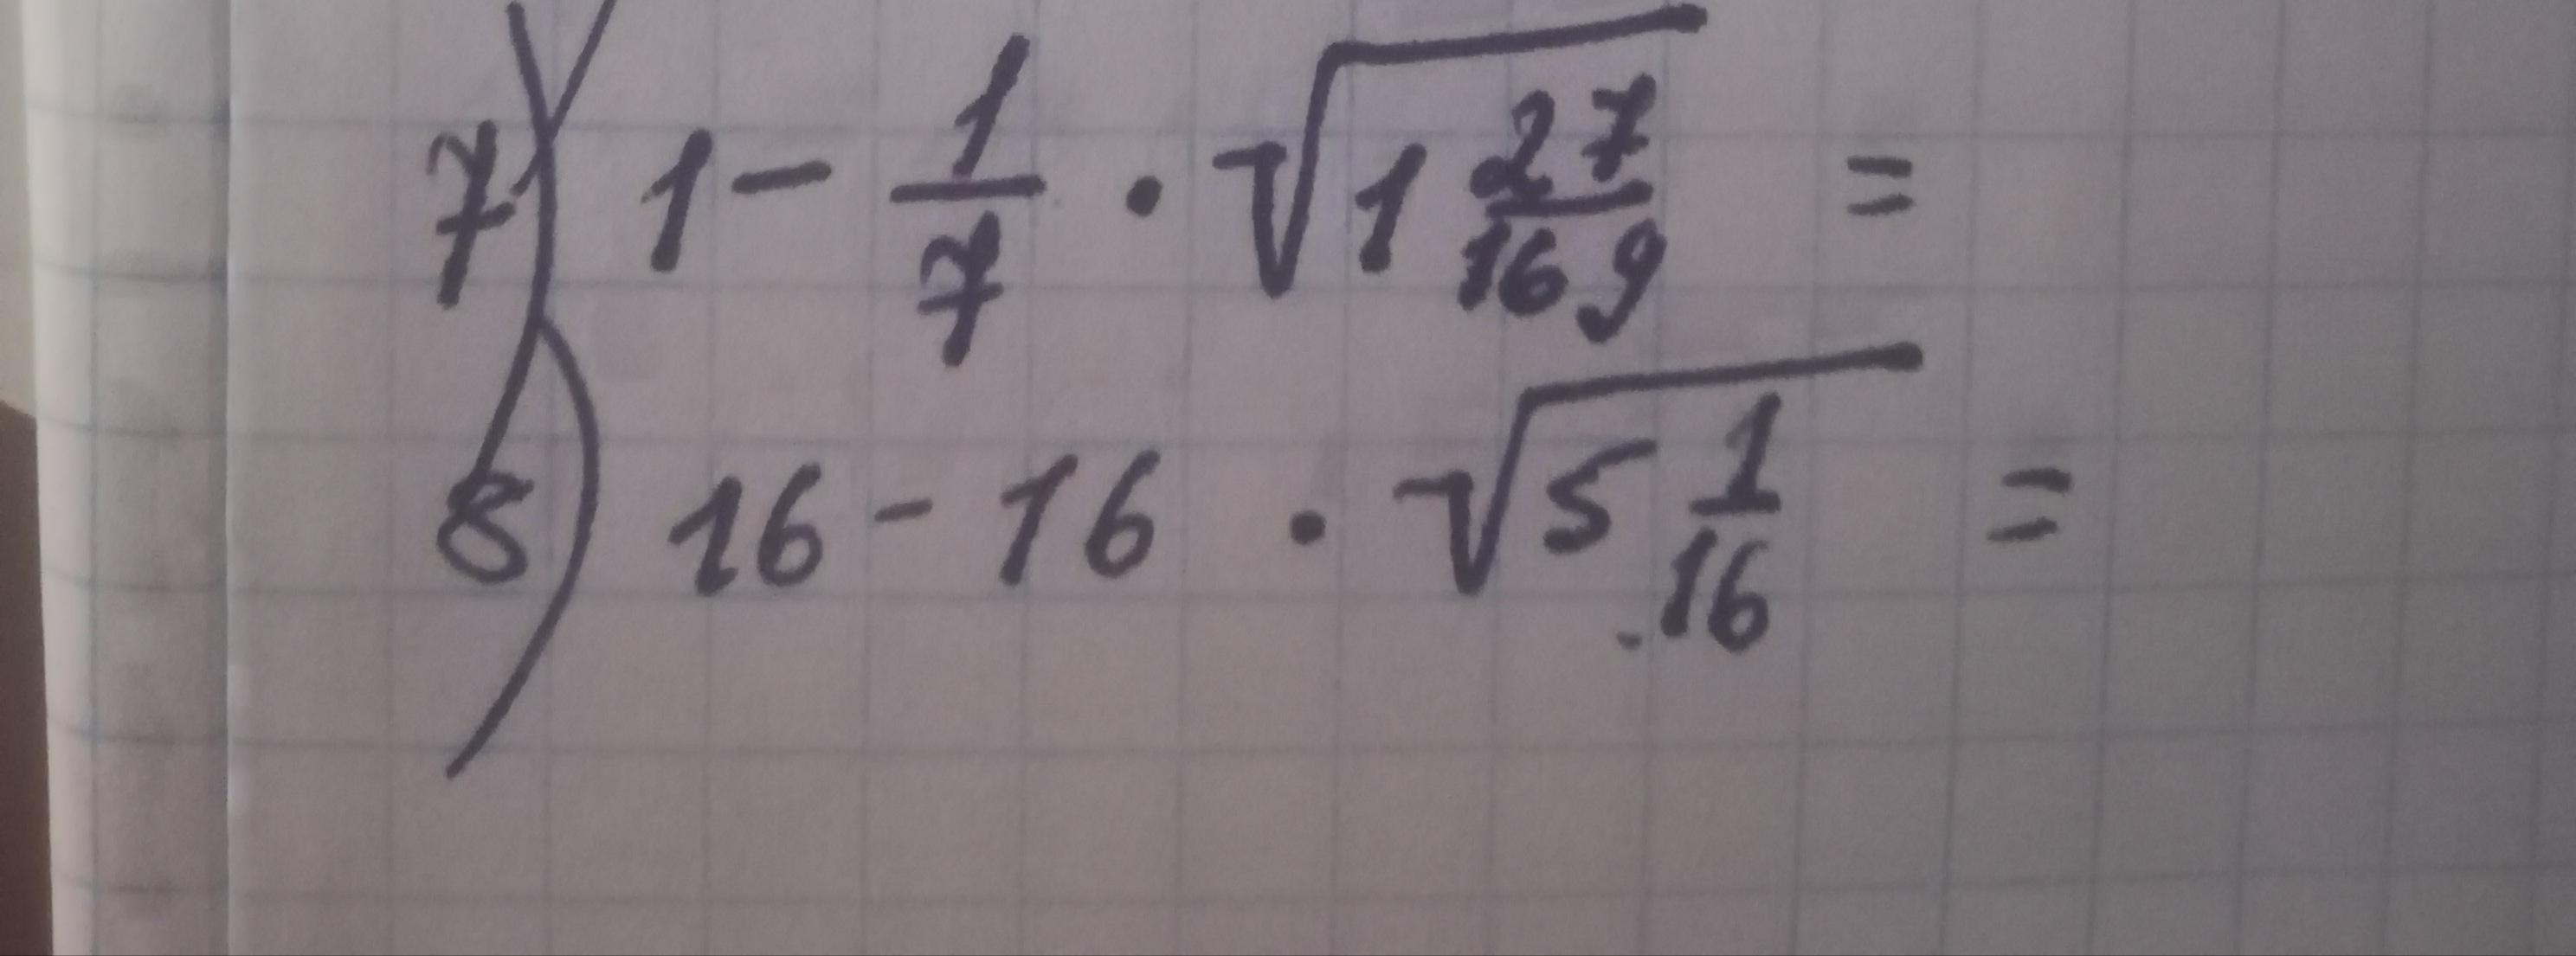 7) 1 - 1/7 · √(1 27/169) =
8) 16 - 16 · √(5 1/16) =